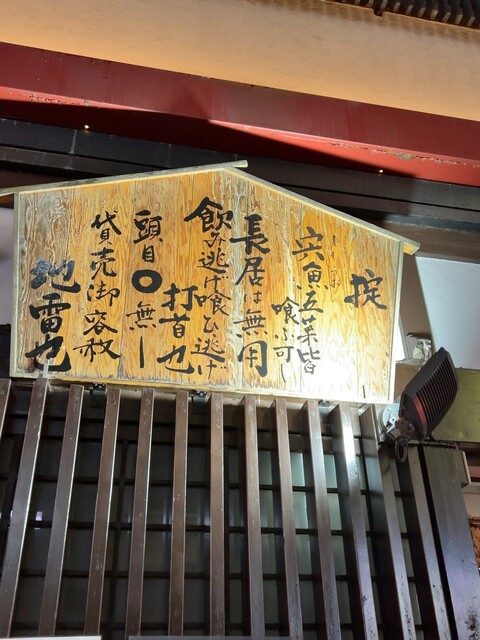 掟
宍魚五菜皆
喰ふ可し
長居は無用
飲み逃げ喰ひ逃げ
打首也
頭目〇無し
貸売御容赦
地雷也